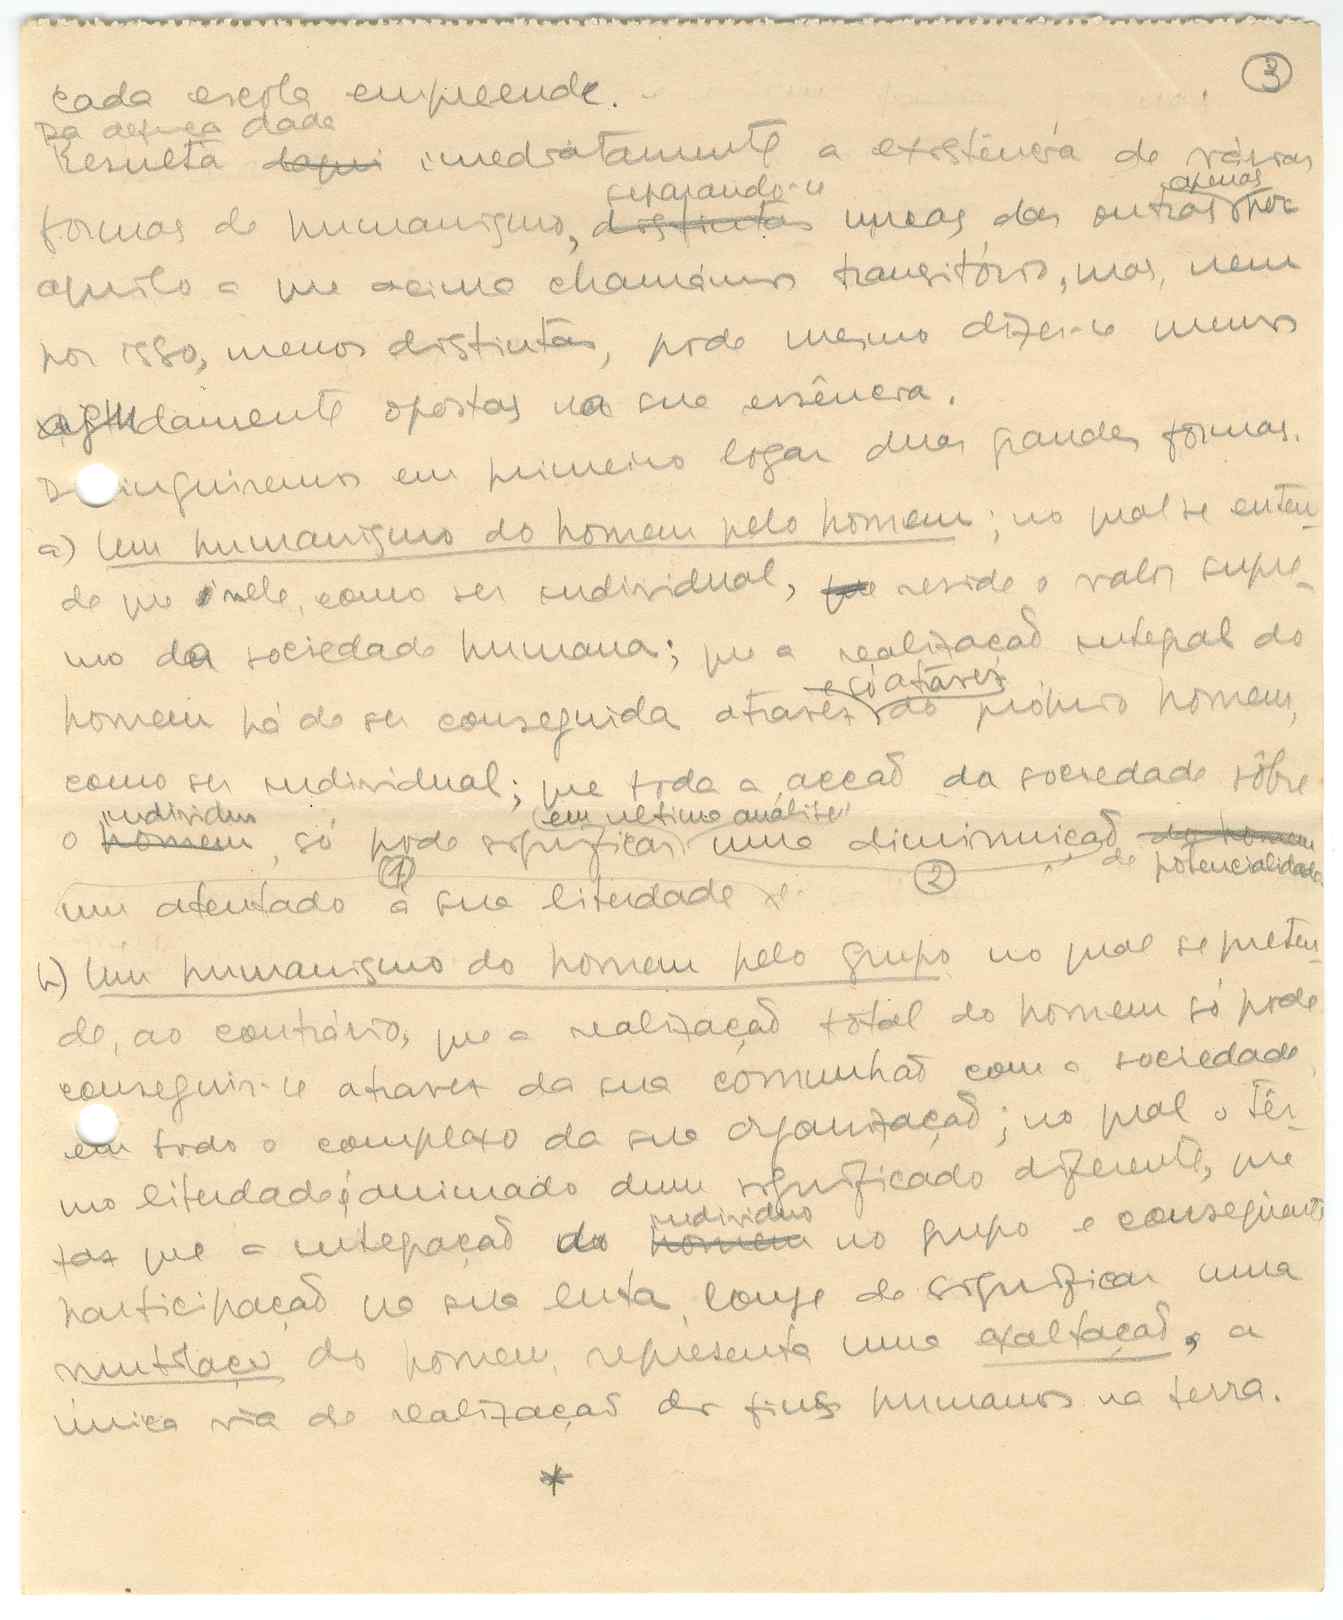 3
cada escola empreende.
Da defesa dada
Resulta daqui imediatamente a existência de várias
separando-se apenas
formas de humanismo, distintas umas das outras por
aquilo a que acima chamámos transitório, mas, nem
por isso, menos distintas, pode mesmo dizer-se menos
damente opostas na sua essência.
Distinguiremos em primeiro logar duas grandes formas.
a) Um humanismo do homem pelo homem; no qual se enten-
de que nele, como ser individual, que reside o valor supre-
mo da sociedade humana; que a realização integral do
e só através
homem há de ser conseguida através do próprio homem,
como ser individual; que toda a acção da sociedade sôbre
individuo (em ultima análise)
o homem, só pode significar uma diminuição do homem
(1) (2) de potencialidade
um atentado à sua liberdade e
b) Um humanismo do homem pelo grupo no qual se preten-
de, ao contrário, que a realização total do homem só pode
conseguir-se atravez da sua comunhão com a sociedade,
em todo o complexo da sua organização; no qual o têr-
mo liberdade é animado dum significado diferente, que
individuo
faz que a integração do homem no grupo e conseqùente
participação na sua luta, longe de significar uma
mutilação do homem, representa uma exaltação, a
única via de realização dos fins humanos na terra.
*